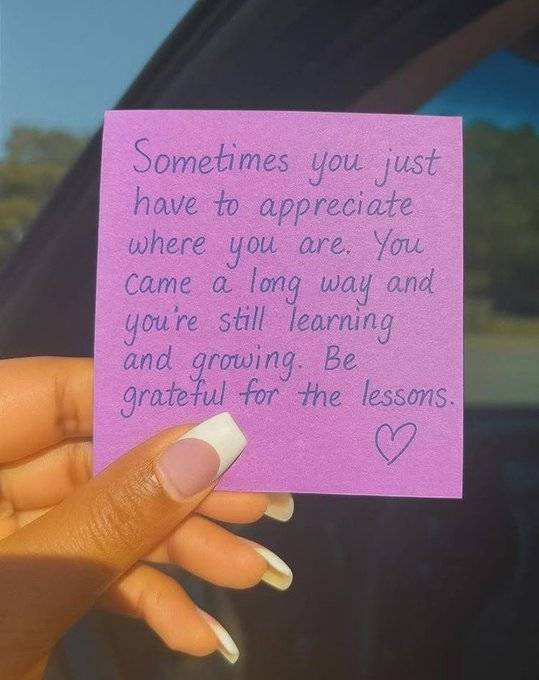 Sometimes you just
have to appreciate
where you are. You
came a long way and
you're still learning
and growing. Be
grateful for the lessons.